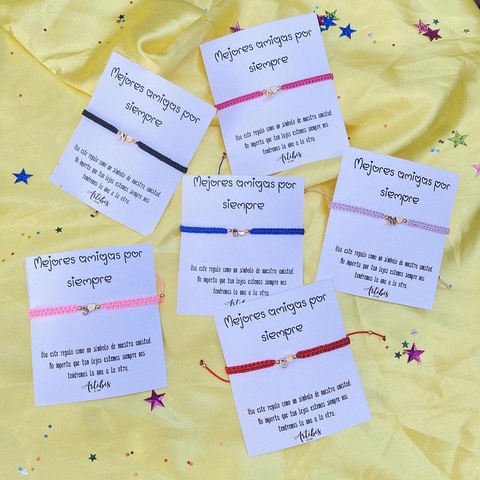 Mejores amigas por
siempre
Usa este regalo como un símbolo de nuestra amistad.
No importa que tan lejos estemos siempre nos
tendremos la una a la otra.
Mejores amigas por
siempre
Usa este regalo como un símbolo de nuestra amistad.
No importa que tan lejos estemos siempre nos
tendremos la una a la otra.
Mejores amigas por
siempre
Usa este regalo como un símbolo de nuestra amistad.
No importa que tan lejos estemos siempre nos
tendremos la una a la otra.
Mejores amigas por
siempre
Usa este regalo como un símbolo de nuestra amistad.
No importa que tan lejos estemos siempre nos
tendremos la una a la otra.
Mejores amigas por
siempre
Usa este regalo como un símbolo de nuestra amistad.
No importa que tan lejos estemos siempre nos
tendremos la una a la otra.
Mejores amigas por
siempre
Usa este regalo como un símbolo de nuestra amistad.
No importa que tan lejos estemos siempre nos
tendremos la una a la otra.